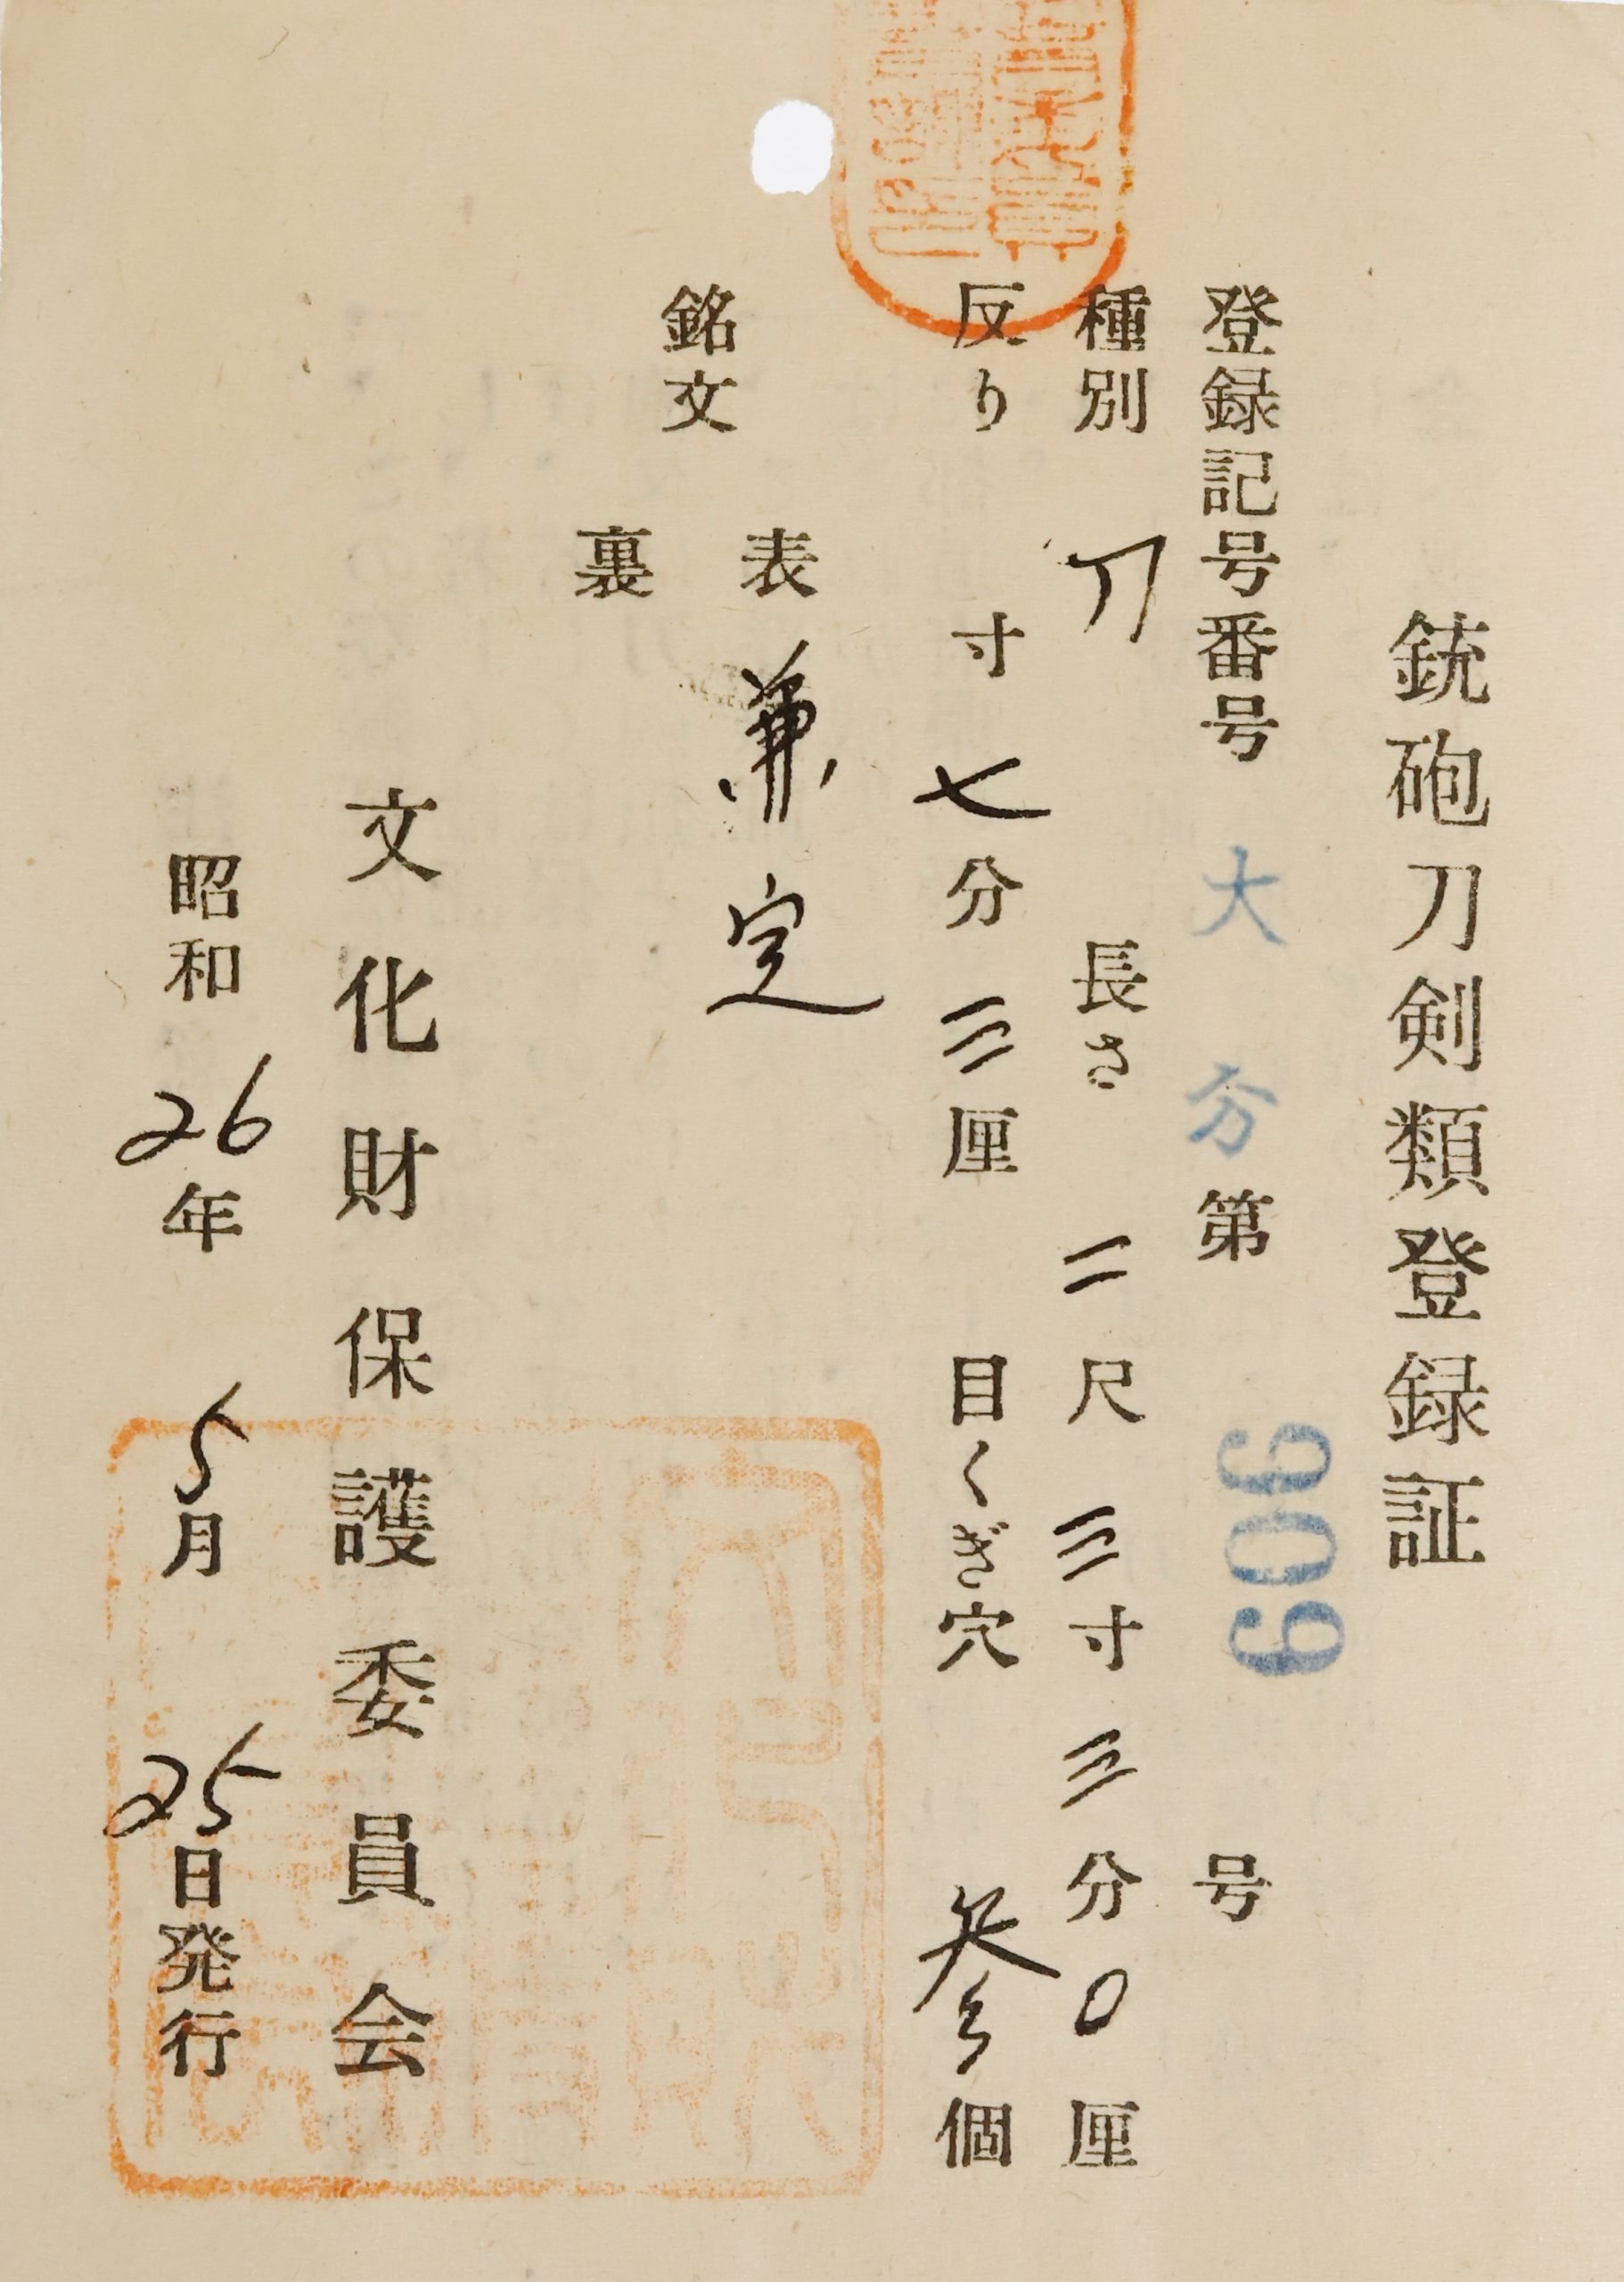 銃砲刀剣類登録証
登録記号番号 大分 第 606 号
種別 刀 長さ 二尺三寸三分0厘
反り 寸七分三厘 目くぎ穴 参個
銘文
表 兼定
裏
文化財保護委員会
昭和26年5月25日発行